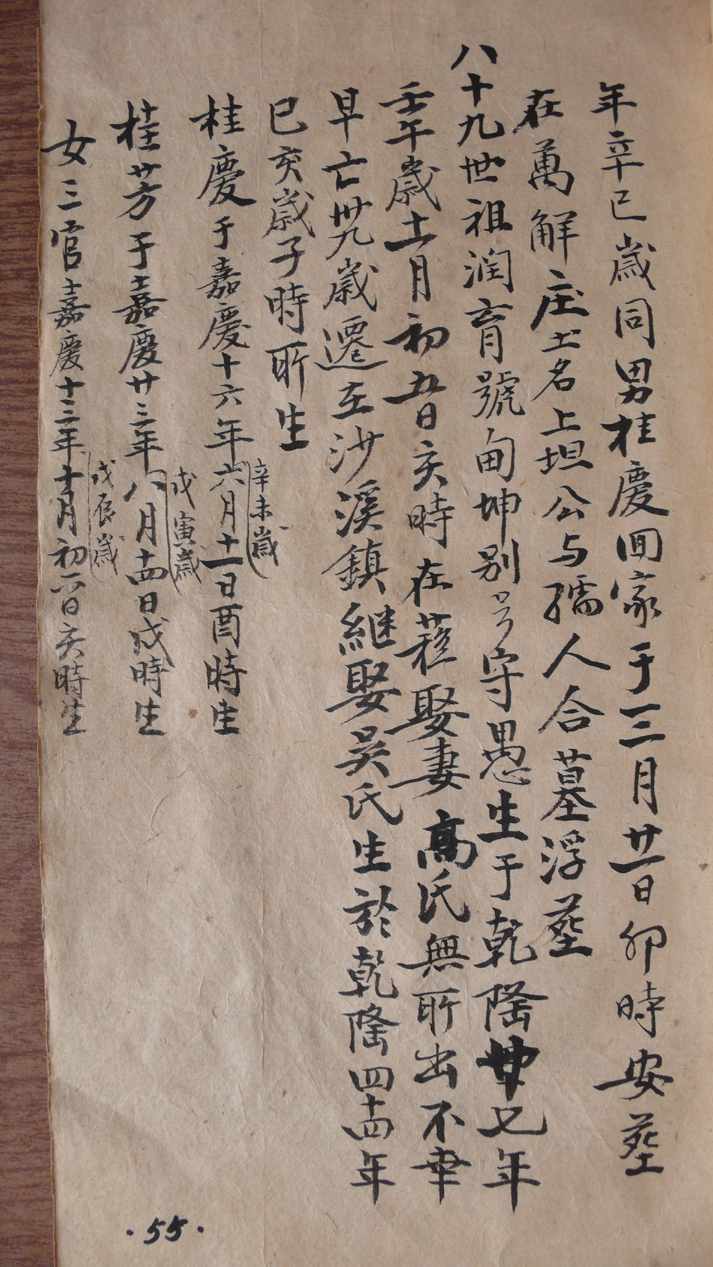 年辛巳歲同男桂慶回家于三月廿一日卯時安葬
在萬解庄土名上坦公与孺人合墓浮葬
八十九世祖润育號甸坤别号守愚生于乾隆廿七年
壬午歲十一月初五日亥時在蓷娶妻高氏無所出不幸
早亡卅九歲遷至沙溪鎮継娶吴氏生於乾隆四十四年
巳亥歲子時所生
桂慶于嘉慶十六年六月十一日酉時生
辛未歲
桂芳于嘉慶廿三年八月十四日戌時生
戊寅歲
女三官嘉慶十三年十月初六日亥時生
戊辰歲
·55·